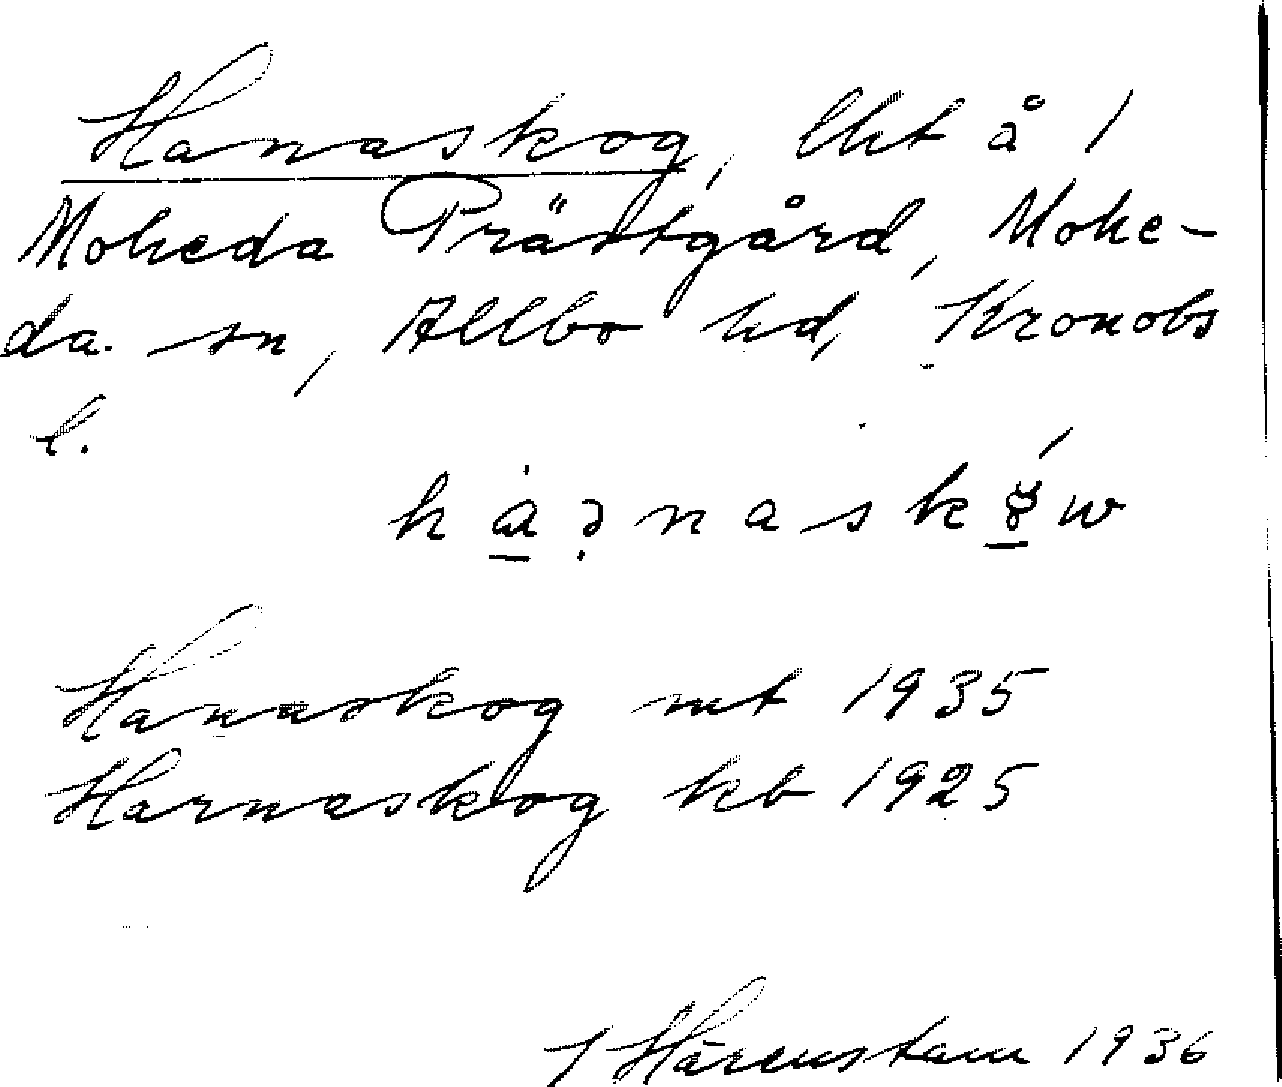 Hanaskog, lht å 1
Moheda Prästgård, Mohe-
da sn, Allbo hd, Kronobs
l.
Hanaskog mt 1935
Harnaskog kb 1925
J Härenstam 1936